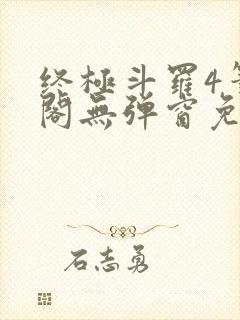 終極斗羅4筆
閣無彈窗免
石志勇